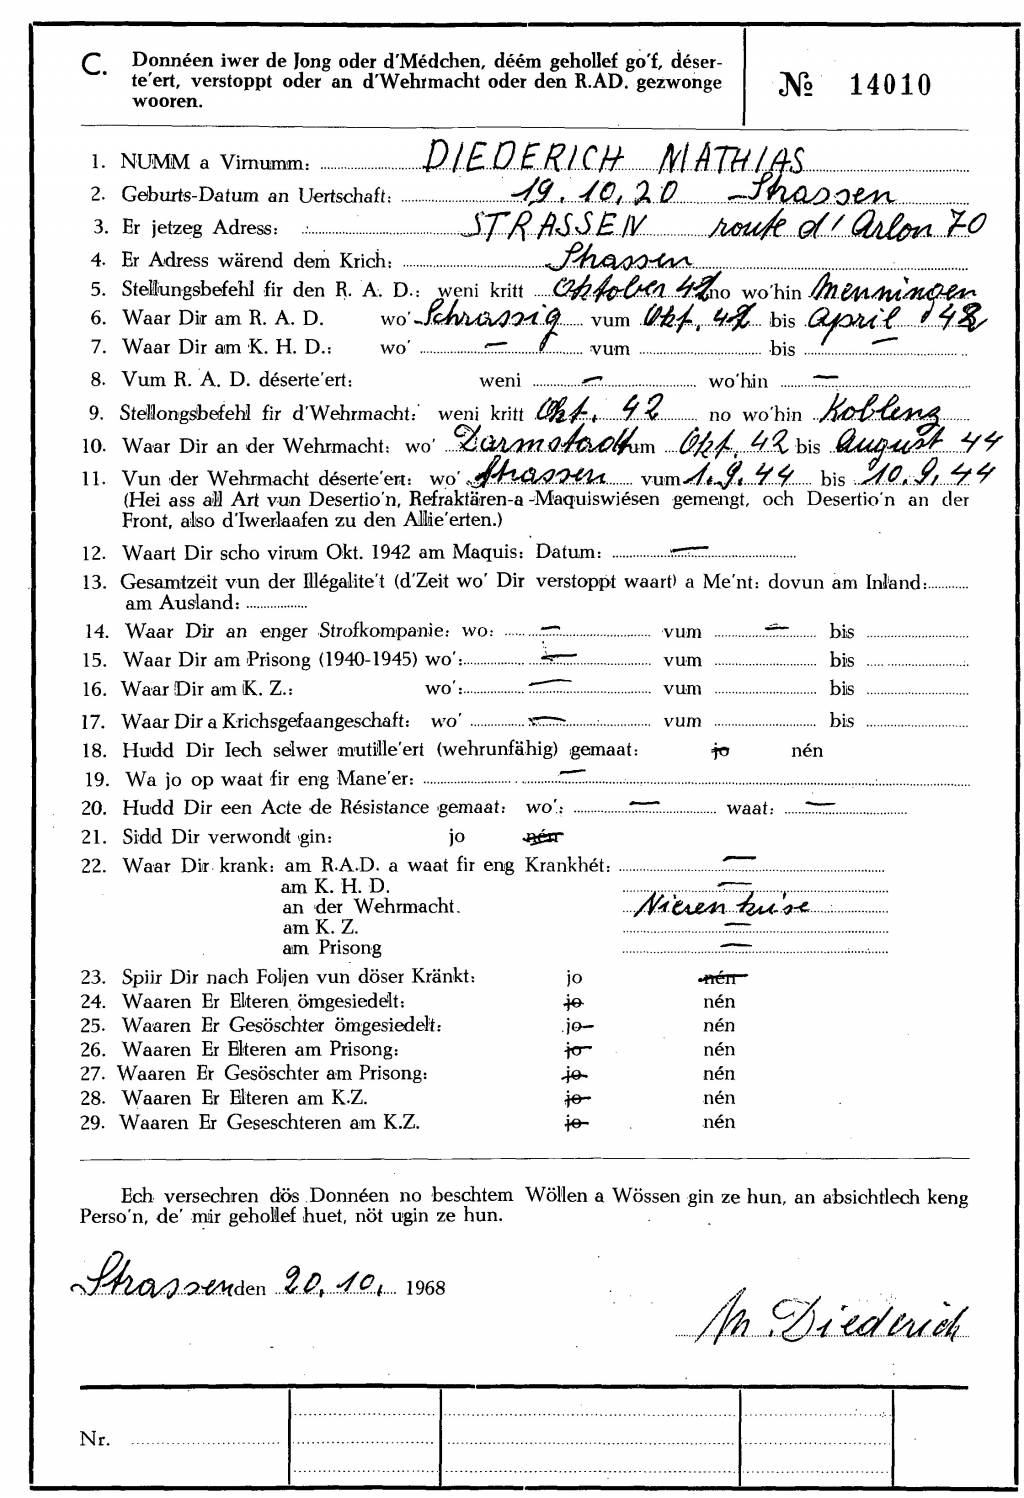 C. Donnéen iwer de Jong oder d'Médchen, déém gehollef go'f, déser-
te'ert, verstoppt oder an d'Wehrmacht oder den R.AD. gezwonge
wooren.
№ 14010
1. NUMM a Virnumm: DIEDERICH MATHIAS
2. Geburts-Datum an Uertschaft: 19.10.20 Strassen
3. Er jetzeg Adress: STRASSEN route d'Arlon 70
4. Er Adress wärend dem Krich: Strassen
5. Stellungsbefehl fir den R. A. D.: weni kritt Oktober 42 no wo'hin Menningen
6. Waar Dir am R. A. D. wo' Schrassig vum Okt. 42 bis April 42
7. Waar Dir am K. H. D.: wo' — vum bis —
8. Vum R. A. D. déserte'ert: weni — wo'hin —
9. Stellongsbefehl fir d'Wehrmacht: weni kritt Okt. 42 no wo'hin Koblenz
10. Waar Dir an der Wehrmacht: wo' Darmstadt um Okt. 42 bis August 44
11. Vun der Wehrmacht déserte'ert: wo' Strassen vum 1.9.44 bis 10.9.44
(Hei ass all Art vun Desertio'n, Refraktären-a -Maquiswiésen gemengt, och Desertio'n an der
Front, also d'Iwerlaafen zu den Allie'erten.)
12. Waart Dir scho virum Okt. 1942 am Maquis: Datum: —
13. Gesamtzeit vun der Illégalite't (d'Zeit wo' Dir verstoppt waart) a Me'nt: dovun am Inland:
am Ausland:
14. Waar Dir an enger Strofkompanie: wo: — vum — bis
15. Waar Dir am Prisong (1940-1945) wo': — vum bis
16. Waar Dir am K. Z.: wo': — vum bis
17. Waar Dir a Krichsgefaangeschaft: wo' — vum bis
18. Hudd Dir Iech selwer mutille'ert (wehrunfähig) gemaat: jo nén
19. Wa jo op waat fir eng Mane'er: —
20. Hudd Dir een Acte de Résistance gemaat: wo': — waat: —
21. Sidd Dir verwondt gin: jo nén
22. Waar Dir krank: am R.A.D. a waat fir eng Krankhét: —
am K. H. D. —
an der Wehrmacht. Nieren
am K. Z. —
am Prisong —
23. Spiir Dir nach Foljen vun döser Kränkt: jo nén
24. Waaren Er Elteren ömgesiedelt: jo nén
25. Waaren Er Gesöschter ömgesiedelt: jo nén
26. Waaren Er Elteren am Prisong: jo nén
27. Waaren Er Gesöschter am Prisong: jo nén
28. Waaren Er Elteren am K.Z. jo nén
29. Waaren Er Geseschteren am K.Z. jo nén
Ech versechren dös Donnéen no beschtem Wöllen a Wössen gin ze hun, an absichtlech keng
Perso'n, de' mir gehollef huet, nöt ugin ze hun.
Strassen den 20.10. 1968
M. Diederich
Nr.